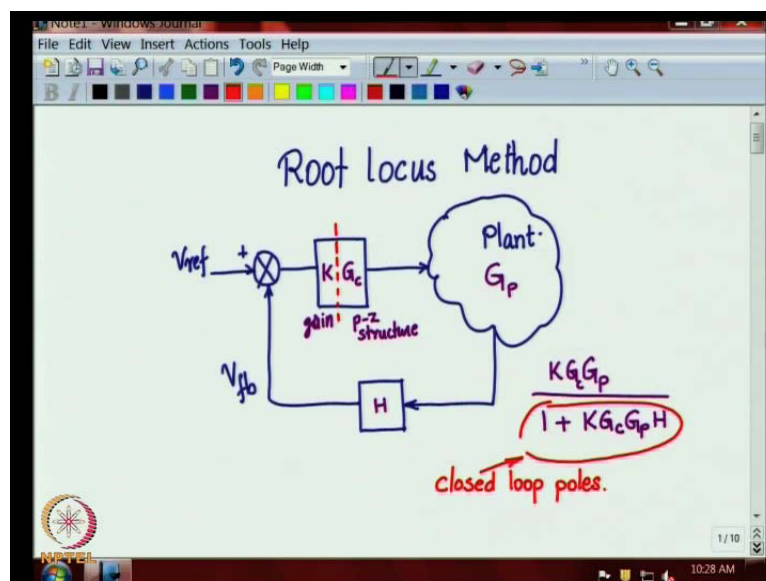 Note1 - Windows Journal
File Edit View Insert Actions Tools Help
Page Width
B I
Root locus Method
Vref
+
K Gc
gain
p-z
structure
Plant.
Gp
Vfb
H
KGcGp
1 + KGcGpH
closed loop poles.
NPTEL
1/10
10:28 AM